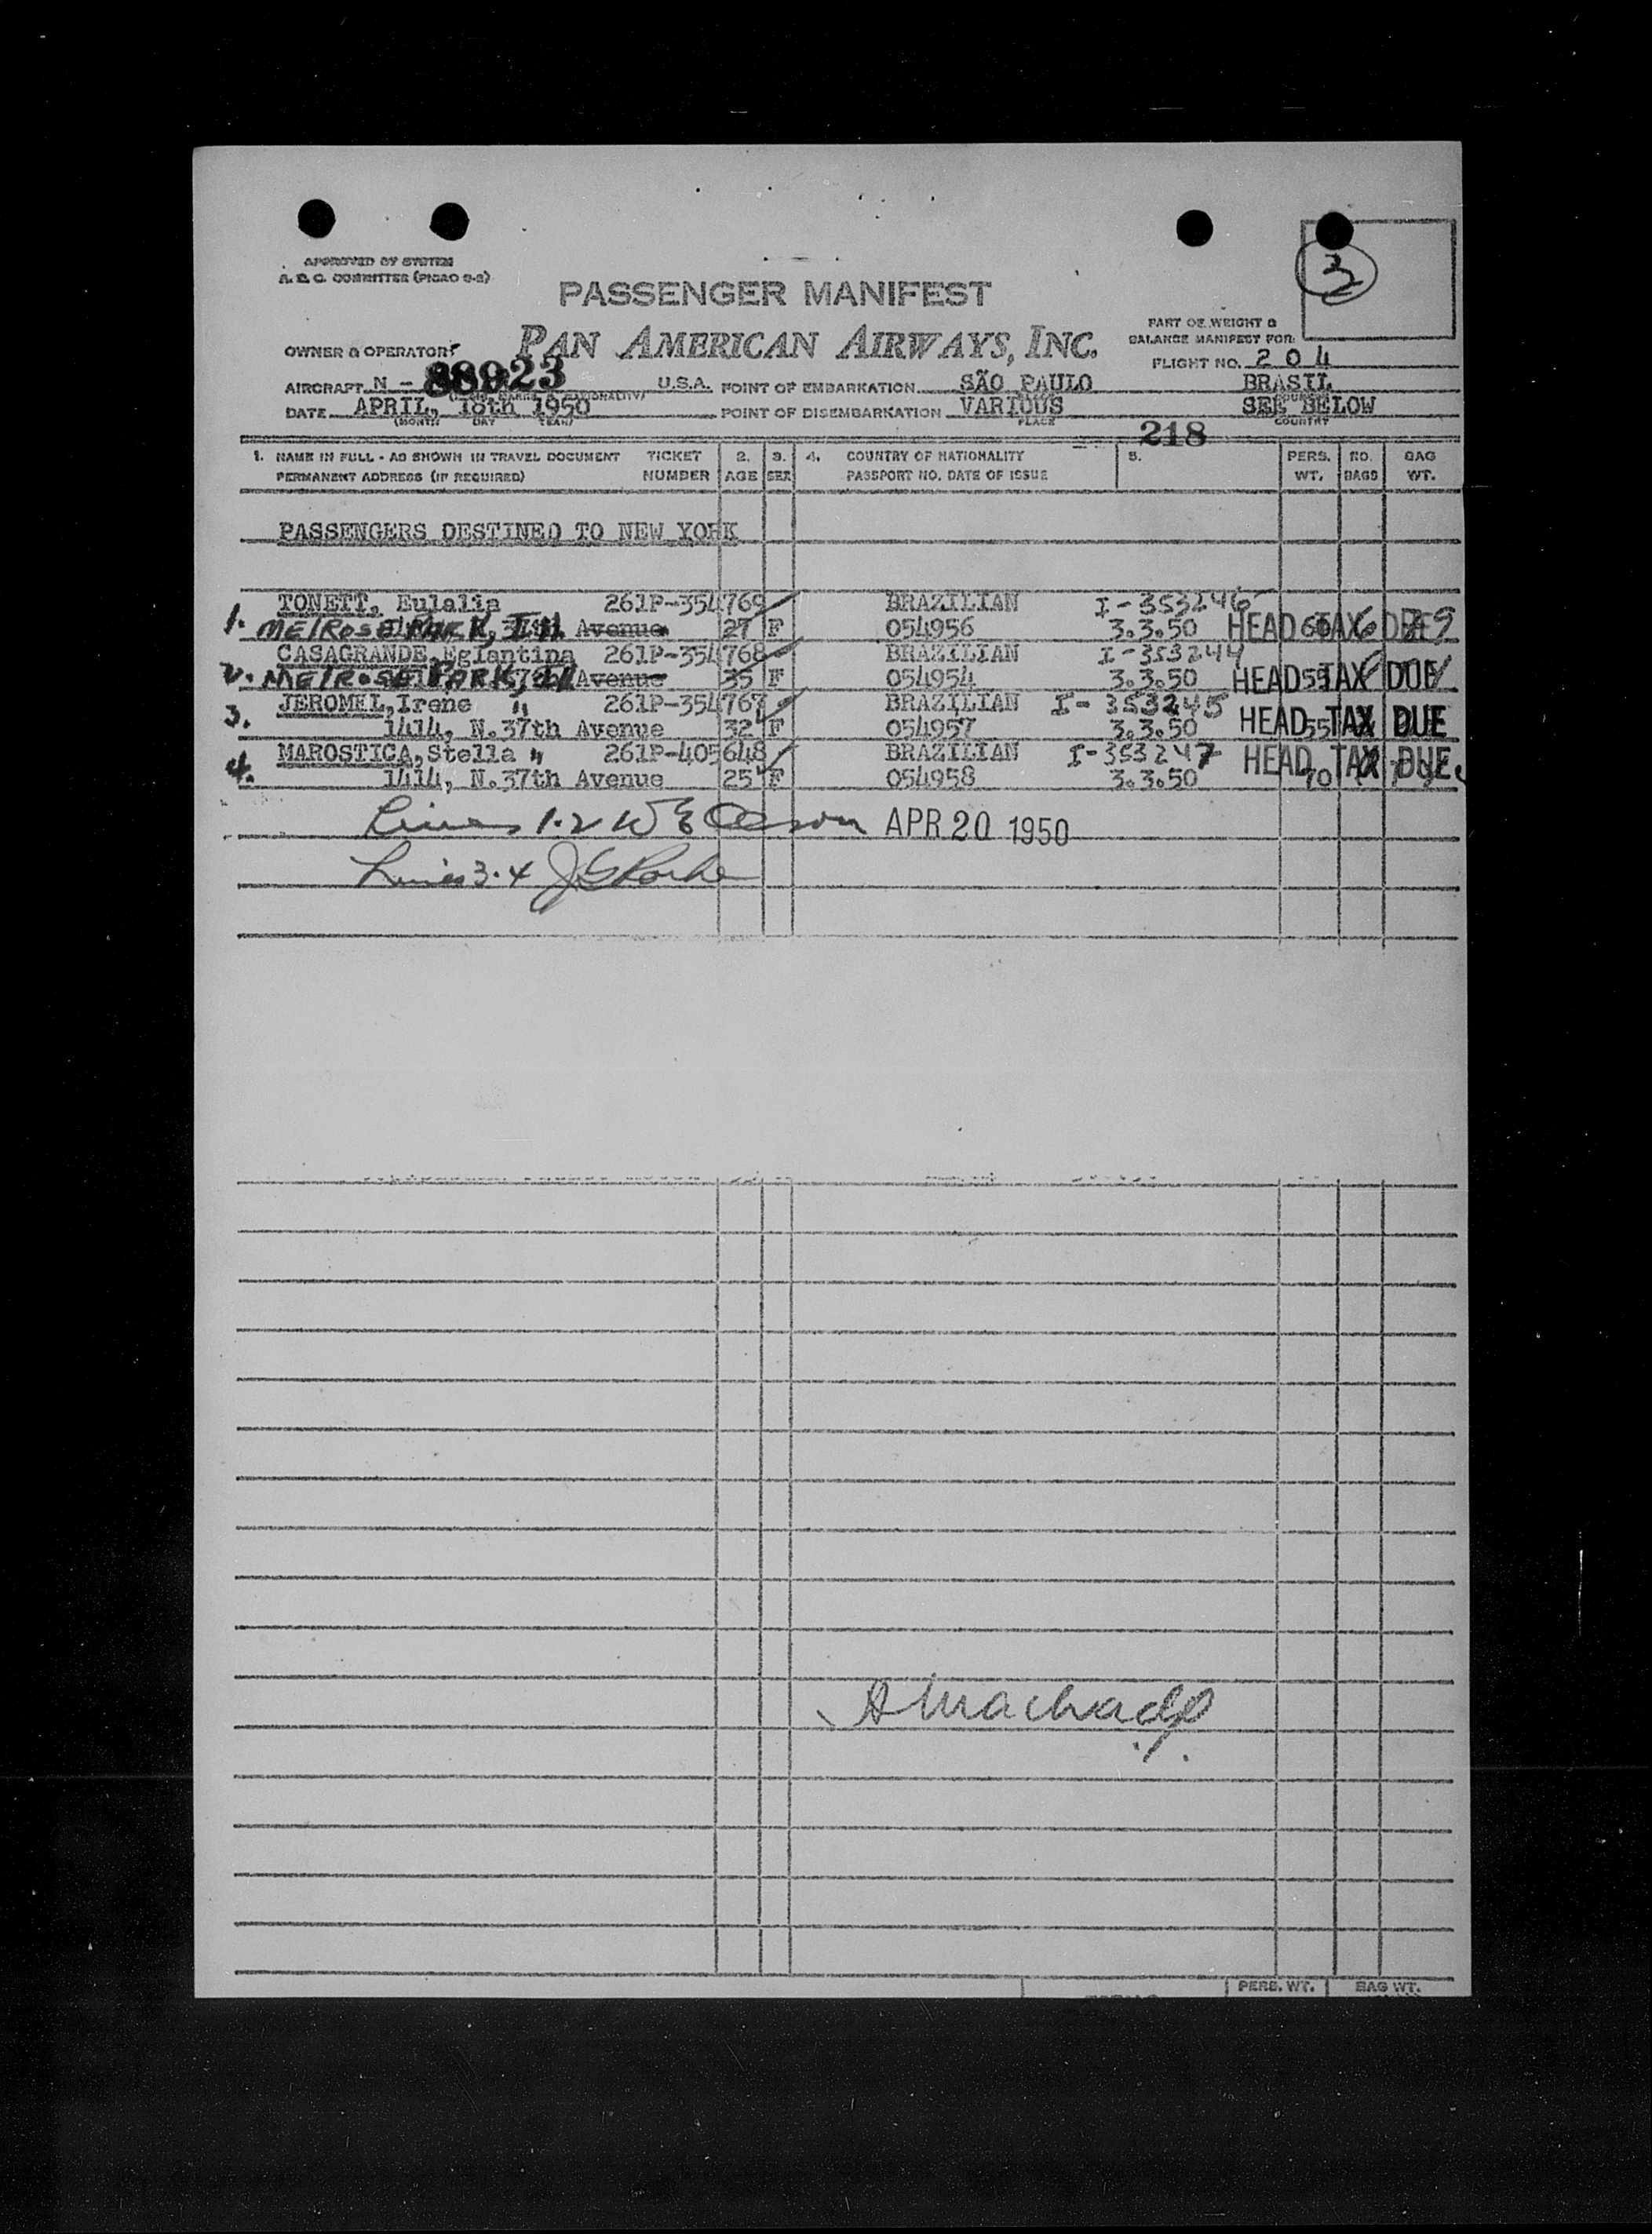 APPROVED BY SYSTEM
A. & C. COMMITTEE (PICAO 9-2)
3
PASSENGER MANIFEST
PART OF WEIGHT &
BALANCE MANIFEST FOR:
OWNER & OPERATOR: PAN AMERICAN AIRWAYS, INC.
FLIGHT NO. 204
AIRCRAFT N - 88923 U.S.A. POINT OF EMBARKATION SÃO PAULO BRASIL
DATE APRIL, 18th 1950 POINT OF DISEMBARKATION VARIOUS SEE BELOW
(MONTH DAY YEAR) PLACE COUNTRY
218
1. NAME IN FULL - AS SHOWN IN TRAVEL DOCUMENT TICKET 2. 3. 4. COUNTRY OF NATIONALITY 5. PERS. NO. BAG
PERMANENT ADDRESS (IF REQUIRED) NUMBER AGE SEX PASSPORT NO. DATE OF ISSUE WT. BAGS WT.
PASSENGERS DESTINED TO NEW YORK
TONETT, Eulalia 261P-354769 BRAZILIAN I-353246
1. MElRoSE PARK, Ill. Avenue 27 F 054956 3.3.50 HEAD TAX DUE
CASAGRANDE, Eglantina 261P-354768 BRAZILIAN I-353244
2. MElRoSE PARK, Ill Avenue 35 F 054954 3.3.50 HEAD 55 TAX DUE
JEROMEL, Irene " 261P-354767 BRAZILIAN I-353245
3. 1414, N.37th Avenue 32 F 054957 3.3.50 HEAD 55 TAX DUE
MAROSTICA, Stella " 261P-405648 BRAZILIAN I-353247
4. 1414, N.37th Avenue 25 F 054958 3.3.50 HEAD 70 TAX DUE
Lines 1-2 W E APR 20 1950
Lines 3-4
AMachado
PERS. WT. BAG WT.